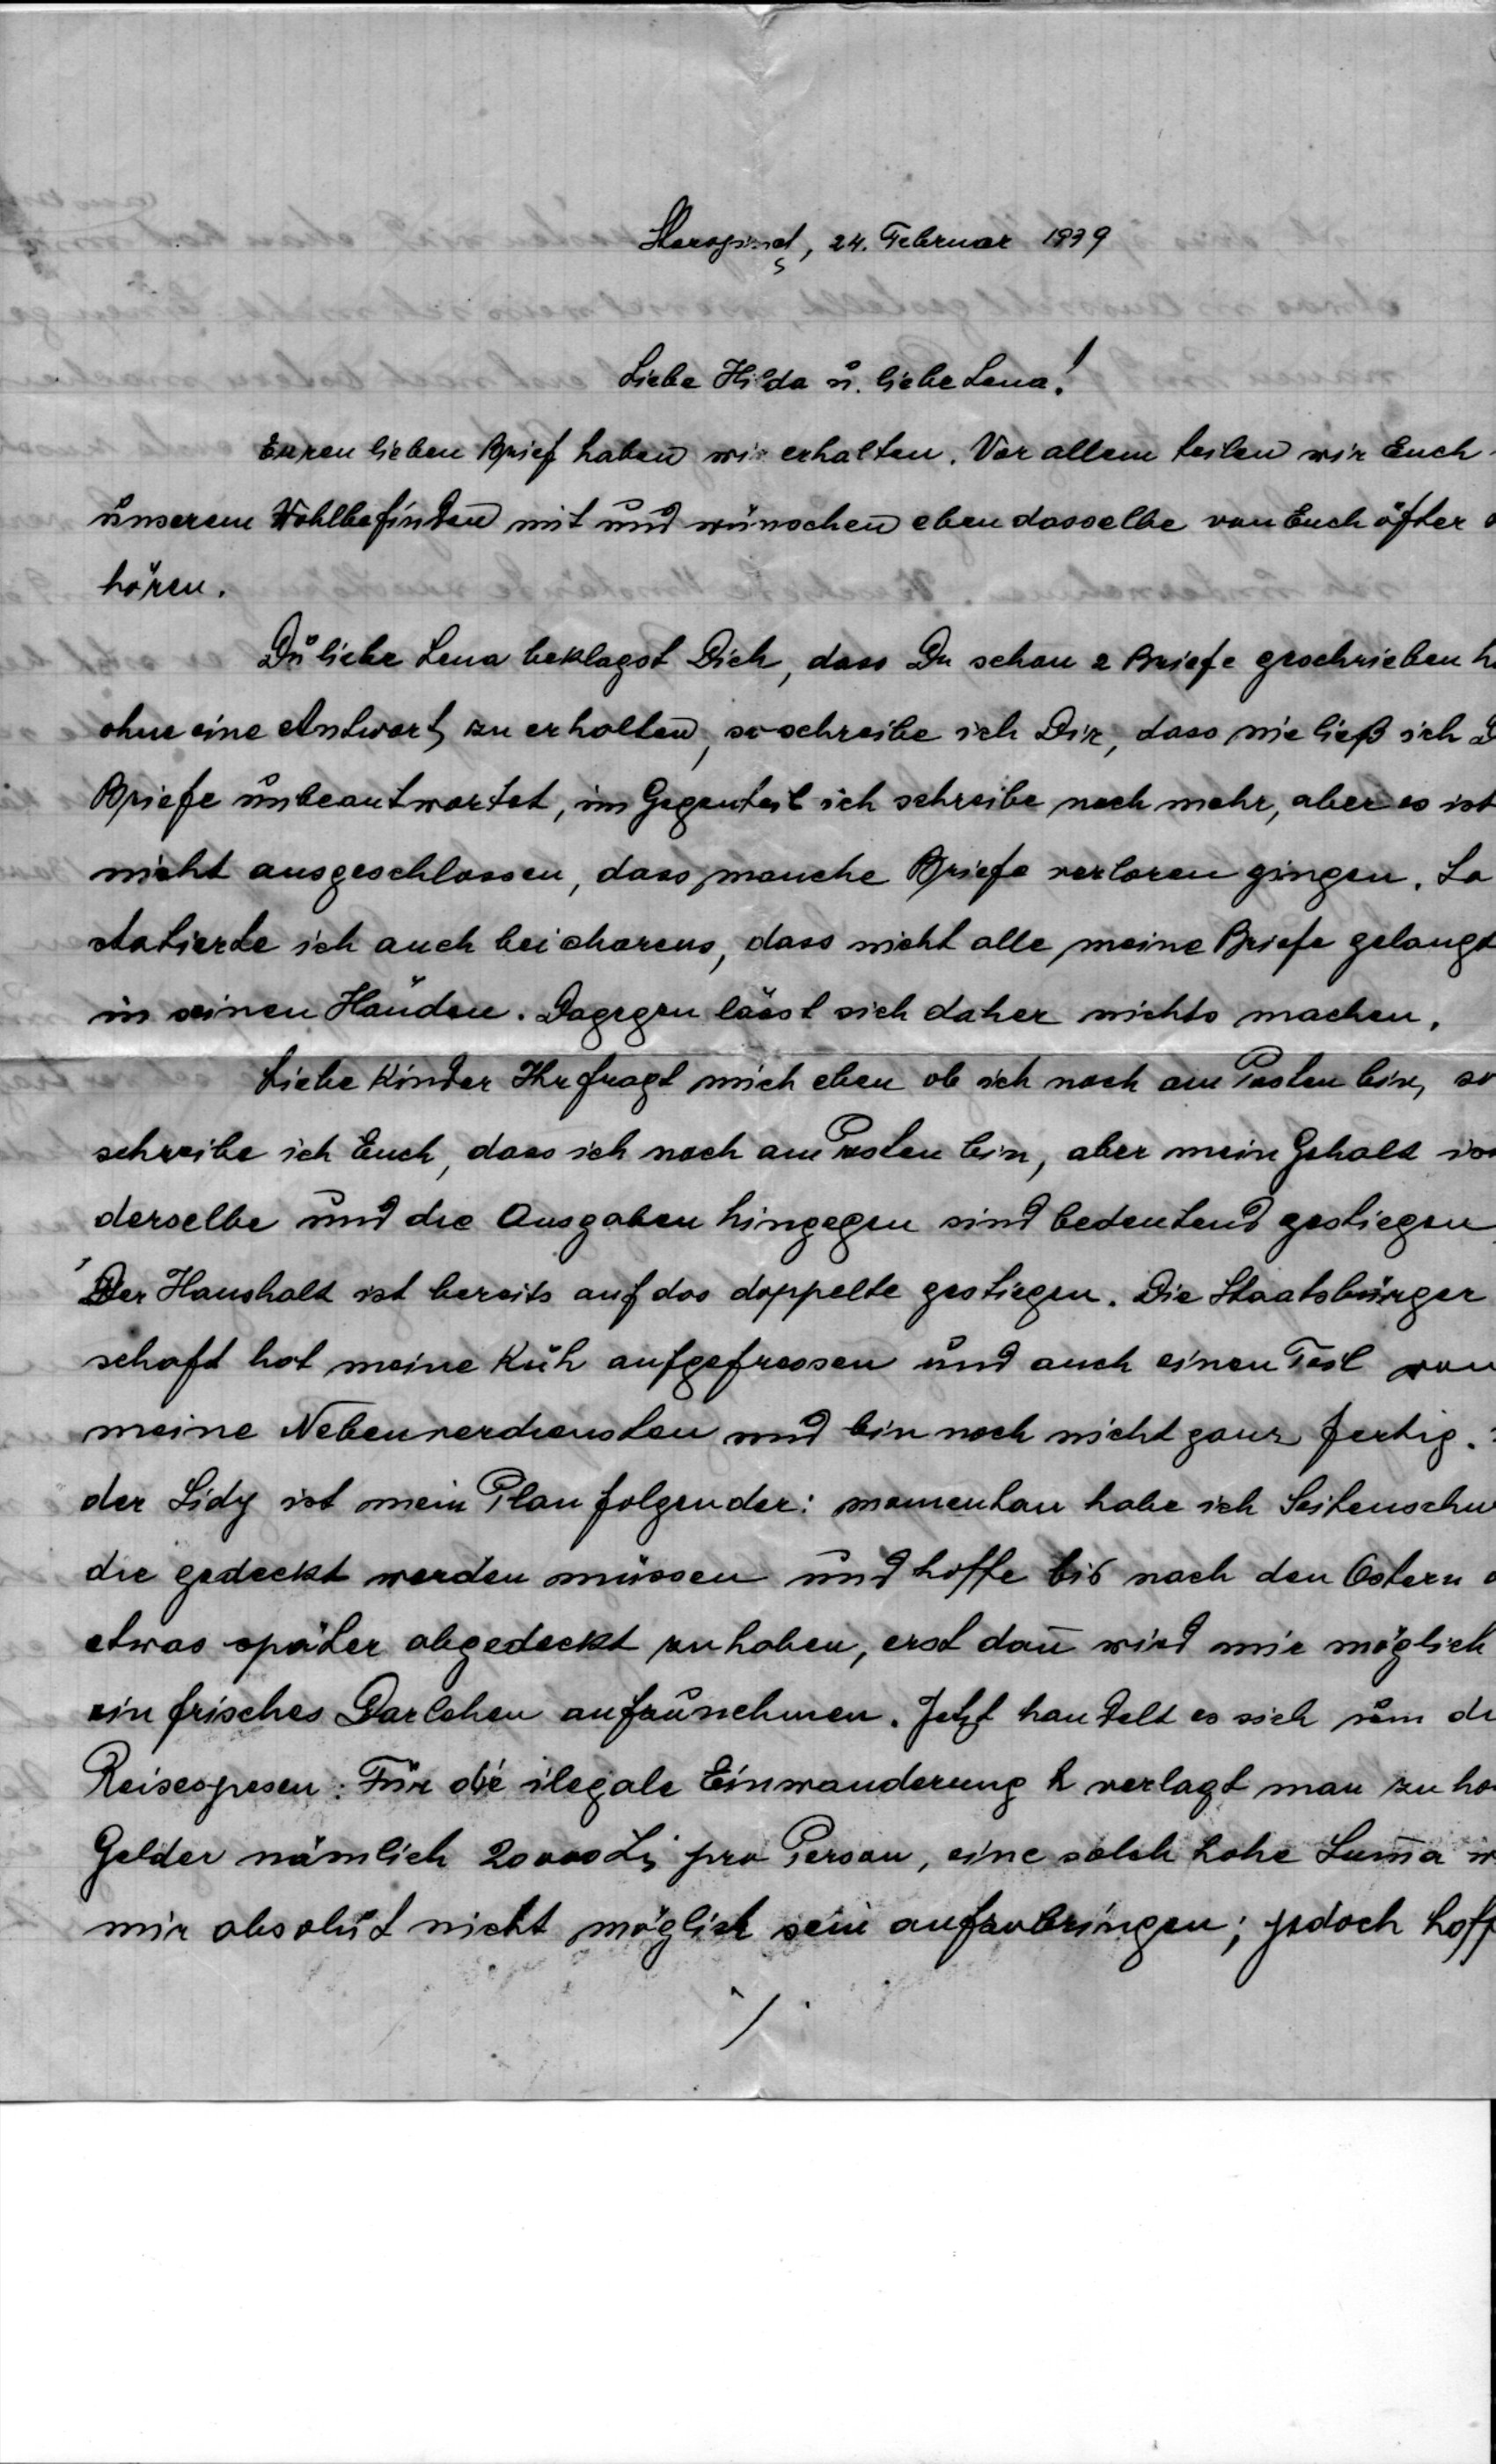 24. Februar 1939
Liebe Hilda u. liebe Lena!
Euren lieben Brief haben wir erhalten. Vor allem teilen wir Euch
unserem Wohlbefinden mit und wünschen eben dasselbe von Euch öfter
hören.
Du liebe Lena beklagst Dich, dass Du schon 2 Briefe geschrieben
ohne eine Antwort zu erhalten, so schreibe ich Dir, dass nie ließ ich
Briefe unbeantwortet, im Gegenteil ich schreibe noch mehr, aber es ist
nicht ausgeschlossen, dass manche Briefe verloren gingen. So
statierte ich auch bei, dass nicht alle meine Briefe gelangt
in seinen Händen. Dagegen lässt sich daher nichts machen.
Liebe Kinder Ihr fragt mich eben ob ich noch am Posten bin, so
schreibe ich Euch, dass ich noch am Posten bin, aber mein Gehalt
derselbe und die Ausgaben hingegen sind bedeutend gestiegen
Der Haushalt ist bereits auf das doppelte gestiegen. Die Staatsbürger
schaft hat meine Kuh aufgefressen und auch einen Teil von
meine Nebenverdiensten und bin noch nicht ganz fertig.
der Sidy ist mein Plan folgender: momentan habe ich
die gedeckt werden müssen und hoffe bis nach den Ostern
etwas später abgedeckt zu haben, erst dan̄ wird mir möglich
ein frisches Darlehen aufzunehmen. Jetzt handelt es sich um
Reisespesen: Für die ilegale Einwanderung verlagt man zu
Gelder nämlich 20000 Li pro Person, eine solch hohe Sum̄a
mir absolut nicht möglich sein aufzubringen; jedoch
./.